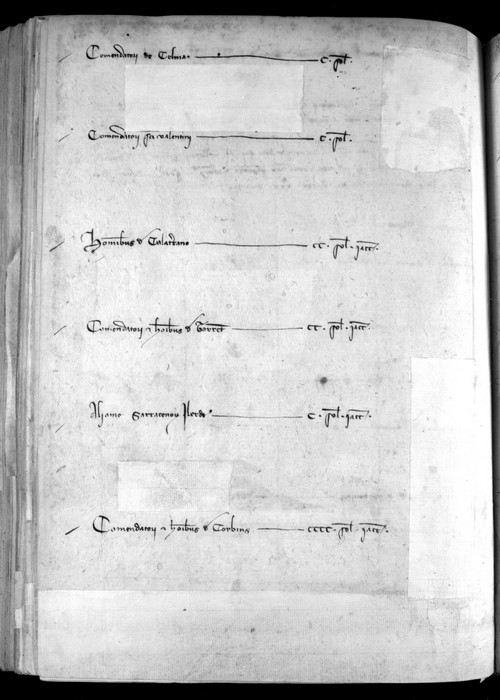 Comendatori de Celma — C · sol ·
Comendatori sci valentini — C · sol ·
Hominibus d — CC · sol · iacc ·
Comendatori ⁊ hoibus d Torrent — CC · sol · iacc ·
Aljame Sarracenor Ilerde — C · sol · iacc ·
Comendatori ⁊ hoibus d Corbins — CCCC · sol · iacc ·